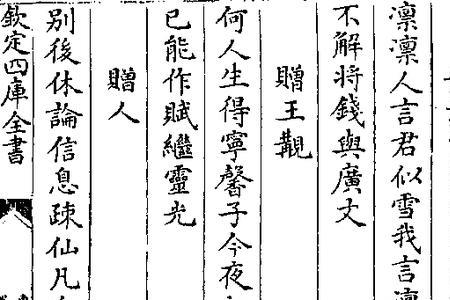 凛凛人言君似雪我言凛
不解將錢與廣文
贈王覯
何人生得寧馨子今夜
已能作賦繼靈光
贈人
別後休論信息疎仙凡
欽定四庫全書